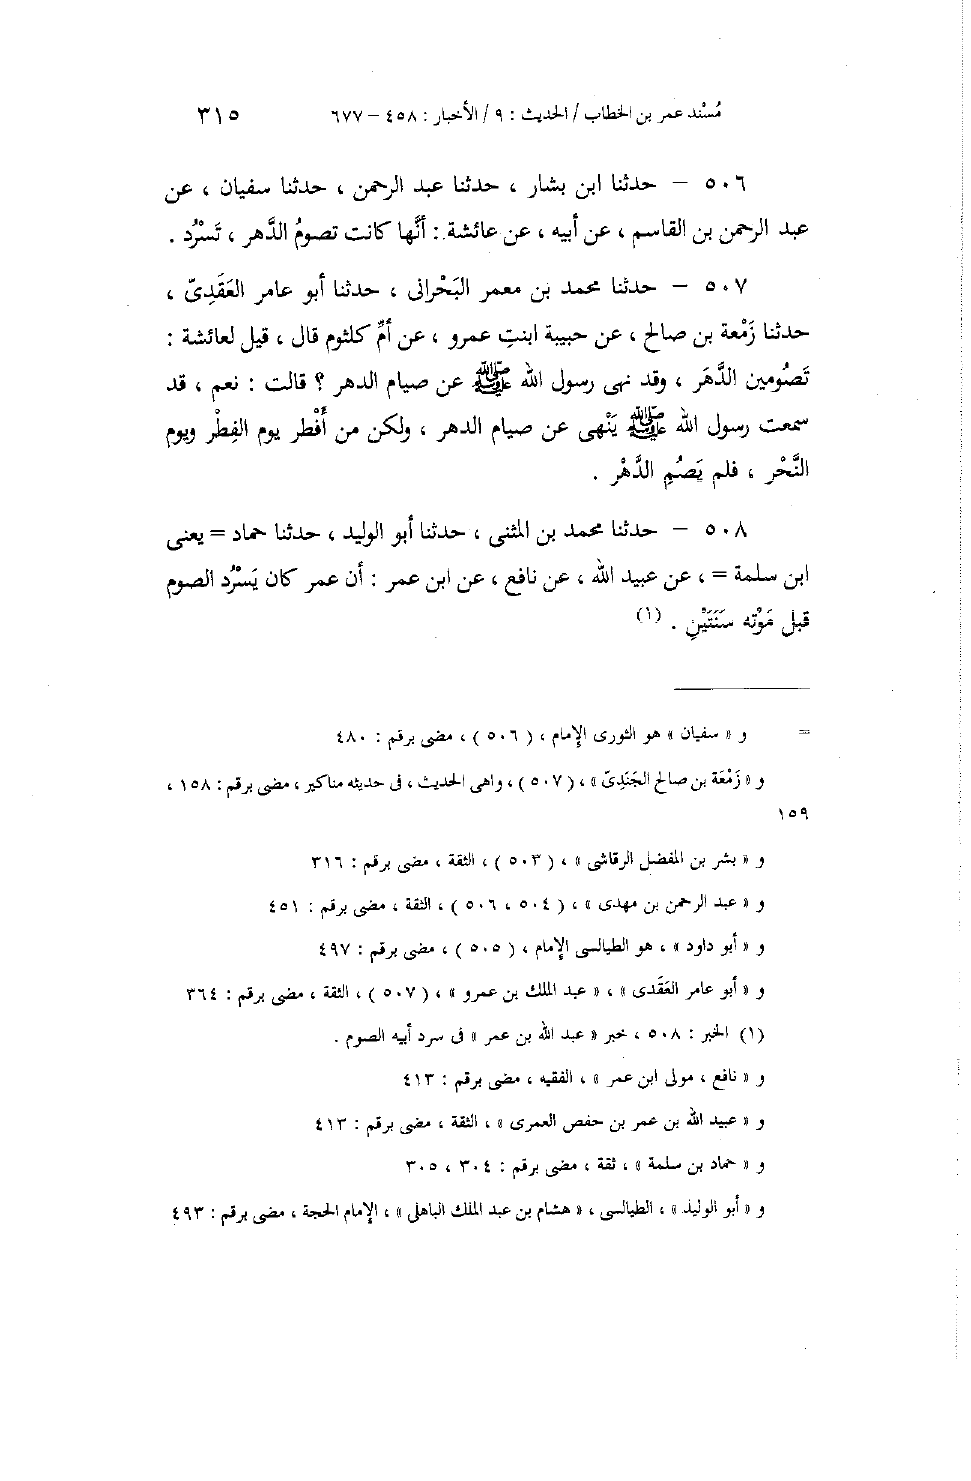 مُسْند عمر بن الخطاب / الحديث : ٩ / الأخبار : ٤٥٨ – ٦٧٧ ٣١٥
٥٠٦ – حدثنا ابن بشار ، حدثنا عبد الرحمن ، حدثنا سفيان ، عن
عبد الرحمن بن القاسم ، عن أبيه ، عن عائشة : أنَّها كانت تصومُ الدَّهر ، تَسْرُد .
٥٠٧ – حدثنا محمد بن معمر البَحْرانى ، حدثنا أبو عامر العَقَدِىّ ،
حدثنا زَمْعة بن صالح ، عن حبيبة ابنتِ عمرو ، عن أمِّ كلثوم قال ، قيل لعائشة :
تَصُومين الدَّهَر ، وقد نهى رسول الله ﷺ عن صيام الدهر ؟ قالت : نعم ، قد
سمعت رسول الله ﷺ يَنْهى عن صيام الدهر ، ولكن من أَفْطر يوم الفِطْر ويوم
النَّحْر ، فلم يَصُمِ الدَّهْر .
٥٠٨ – حدثنا محمد بن المثنى ، حدثنا أبو الوليد ، حدثنا حماد = يعنى
ابن سلمة = ، عن عبيد الله ، عن نافع ، عن ابن عمر : أن عمر كان يَسْرُد الصوم
قبل مَوْته سَنَتَيْنِ . (١)
= و « سفيان » هو الثورى الإمام ، ( ٥٠٦ ) ، مضى برقم : ٤٨٠
و « زَمْعَة بن صالح الجَنَدِىّ » ، ( ٥٠٧ ) ، واهى الحديث ، فى حديثه مناكير ، مضى برقم : ١٥٨ ،
١٥٩
و « بشر بن المفضل الرقاشى » ، ( ٥٠٣ ) ، الثقة ، مضى برقم : ٣١٦
و « عبد الرحمن بن مهدى » ، ( ٥٠٤ ، ٥٠٦ ) ، الثقة ، مضى برقم : ٤٥١
و « أبو داود » ، هو الطيالسى الإمام ، ( ٥٠٥ ) ، مضى برقم : ٤٩٧
و « أبو عامر العَقَدى » ، « عبد الملك بن عمرو » ، ( ٥٠٧ ) ، الثقة ، مضى برقم : ٣٦٤
(١) الخبر : ٥٠٨ ، خبر « عبد الله بن عمر » فى سرد أبيه الصوم .
و « نافع ، مولى ابن عمر » ، الفقيه ، مضى برقم : ٤١٣
و « عبيد الله بن عمر بن حفص العمرى » ، الثقة ، مضى برقم : ٤١٣
و « حماد بن سلمة » ، ثقة ، مضى برقم : ٣٠٤ ، ٣٠٥
و « أبو الوليد » ، الطيالسى ، « هشام بن عبد الملك الباهلى » ، الإمام الحجة ، مضى برقم : ٤٩٣